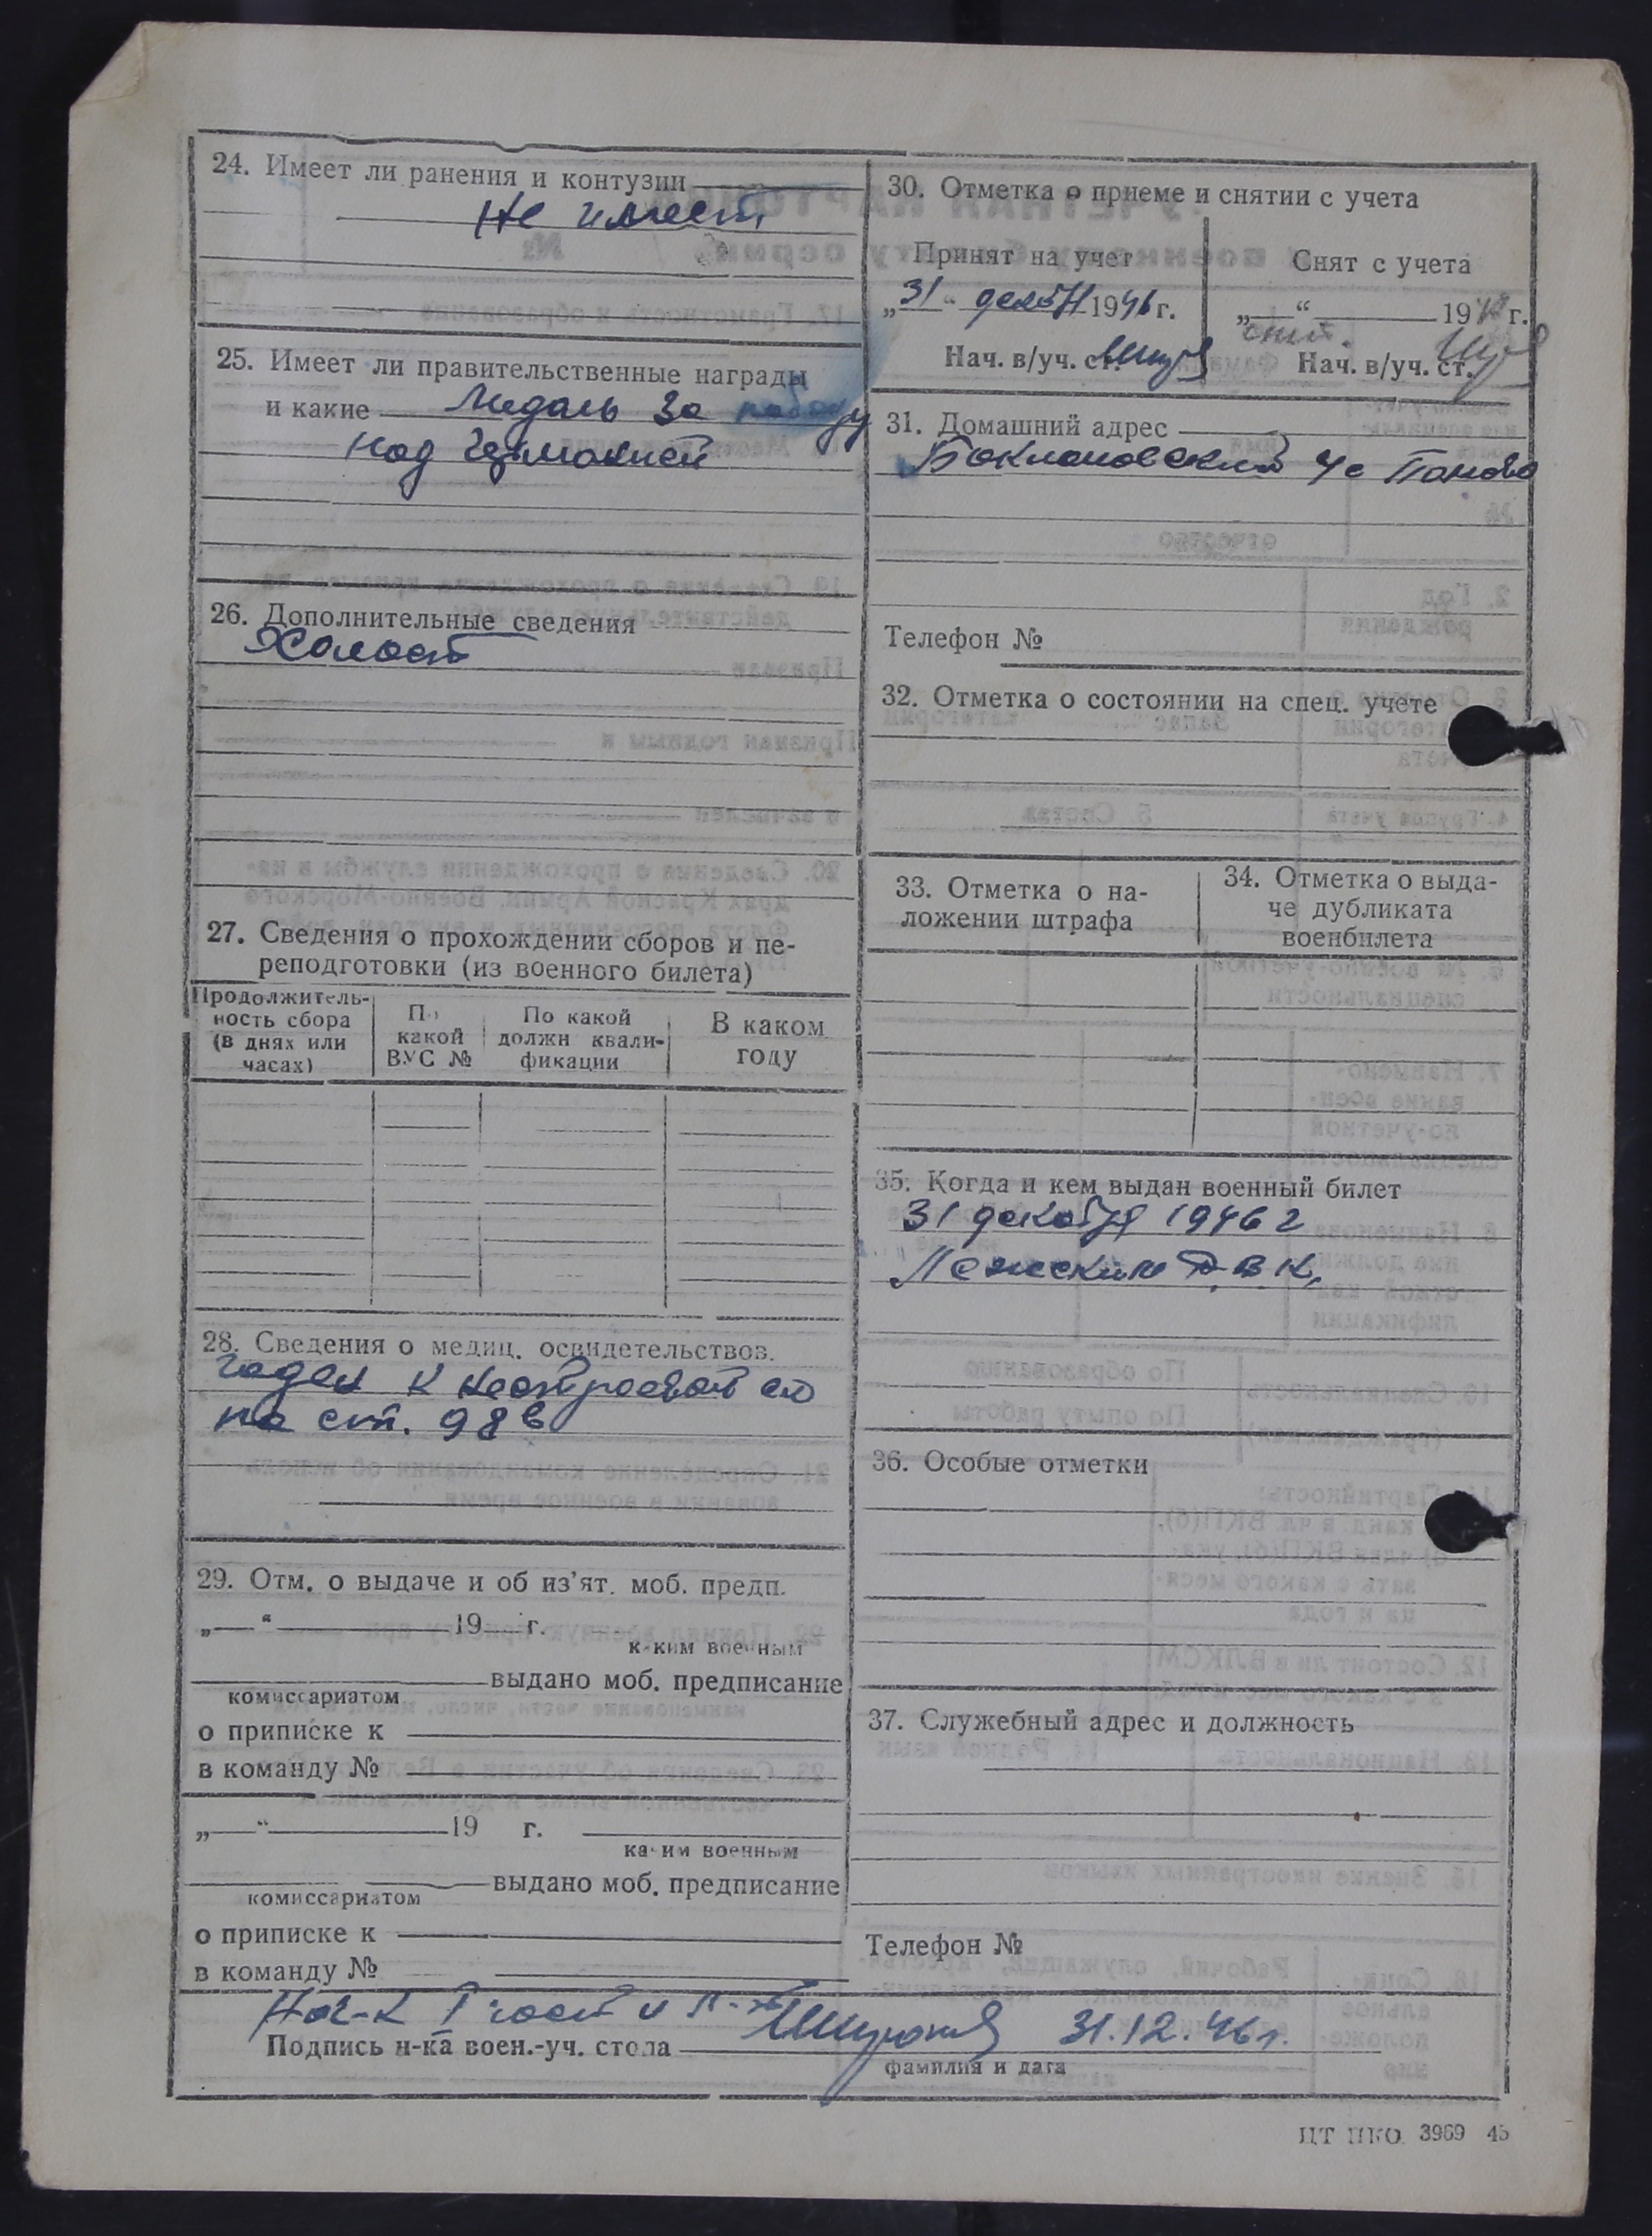 24. Имеет ли ранения и контузии
Не имеет
25. Имеет ли правительственные награды
и какие Медаль За победу
над Германией
26. Дополнительные сведения
Холост
27. Сведения о прохождении сборов и пе-
реподготовки (из военного билета)
Продолжитель-
ность сбора
(в днях или
часах)
По
какой
ВУС №
По какой
должн квали-
фикации
В каком
году
28. Сведения о медиц. освидетельствов.
годен к нестроевой сл
по ст. 98в
29. Отм. о выдаче и об из'ят. моб. предп.
„ “ 19 г.
каким военным
выдано моб. предписание
комиссариатом
о приписке к
в команду №
„ “ 19 г.
каким военным
выдано моб. предписание
комиссариатом
о приписке к
в команду №
30. Отметка о приеме и снятии с учета
Принят на учет
„31“ декабя 1946 г.
Нач. в/уч. ст.
Снят с учета
„ “ 194 г.
Нач. в/уч. ст.
31. Домашний адрес
Баклановский с Паново
Телефон №
32. Отметка о состоянии на спец. учете
33. Отметка о на-
ложении штрафа
34. Отметка о выда-
че дубликата
военбилета
35. Когда и кем выдан военный билет
31 декабря 1946 г
Лежским Р.В.К.
36. Особые отметки
37. Служебный адрес и должность
Телефон №
Нач-к I части
Подпись н-ка воен.-уч. стола 31.12.46г.
фамилия и дата
ЦТ НКО 3969 45